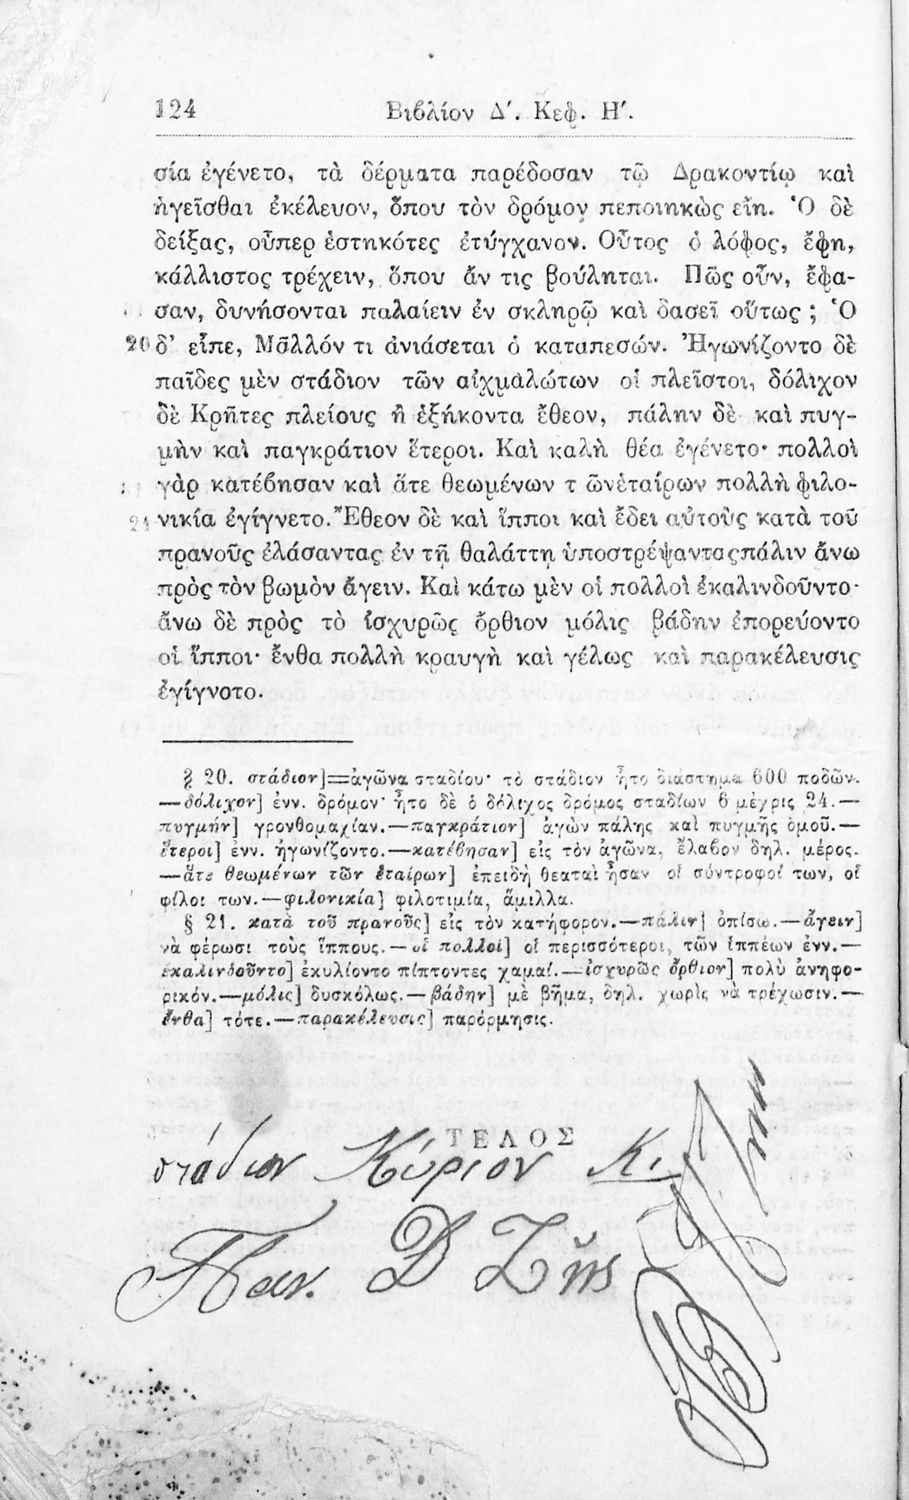 124 Βιβλίον Δ΄. Κεφ. Η΄.
σία ἐγένετο, τὰ δέρματα παρέδοσαν τῷ Δρακοντίῳ καὶ
ἡγεῖσθαι ἐκέλευον, ὅπου τὸν δρόμον πεποιηκὼς εἴη. Ὁ δὲ
δείξας, οὗπερ ἑστηκότες ἐτύγχανον. Οὗτος ὁ λόφος, ἔφη,
κάλλιστος τρέχειν, ὅπου ἄν τις βούληται. Πῶς οὖν, ἔφα-
σαν, δυνήσονται παλαίειν ἐν σκληρῷ καὶ δασεῖ οὕτως ; Ὁ
20 δ' εἶπε, Μᾶλλόν τι ἀνιάσεται ὁ καταπεσών. Ἠγωνίζοντο δὲ
παῖδες μὲν στάδιον τῶν αἰχμαλώτων οἱ πλεῖστοι, δόλιχον
δὲ Κρῆτες πλείους ἢ ἑξήκοντα ἔθεον, πάλην δὲ καὶ πυγ-
μὴν καὶ παγκράτιον ἕτεροι. Καὶ καλὴ θέα ἐγένετο· πολλοὶ
γὰρ κατέβησαν καὶ ἅτε θεωμένων τ ῶνἑταίρων πολλὴ φιλο-
21 νικία ἐγίγνετο. Ἔθεον δὲ καὶ ἵπποι καὶ ἔδει αὐτοὺς κατὰ τοῦ
πρανοῦς ἐλάσαντας ἐν τῇ θαλάττῃ ὑποστρέψανταςπάλιν ἄνω
πρὸς τὸν βωμὸν ἄγειν. Καὶ κάτω μὲν οἱ πολλοὶ ἐκαλινδοῦντο·
ἄνω δὲ πρὸς τὸ ἰσχυρῶς ὄρθιον μόλις βάδην ἐπορεύοντο
οἱ ἵπποι· ἔνθα πολλὴ κραυγὴ καὶ γέλως καὶ παρακέλευσις
ἐγίγνοτο.
§ 20. στάδιον]=ἀγῶνα σταδίου· τὸ στάδιον ἦτο διάστημα 600 ποδῶν.
—δόλιχον] ἐνν. δρόμον· ἦτο δὲ ὁ δόλιχος δρόμος σταδίων 6 μέχρις 24.—
πυγμήν] γρονθομαχίαν.—παγκράτιον] ἀγὼν πάλης καὶ πυγμῆς ὁμοῦ.—
ἕτεροι] ἐνν. ἠγωνίζοντο.—κατέβησαν] εἰς τὸν ἀγῶνα, ἔλαβον δηλ. μέρος.
—ἅτε θεωμένων τῶν ἑταίρων] ἐπειδὴ θεαταὶ ἦσαν οἱ σύντροφοί των, οἱ
φίλοι των.—φιλονικία] φιλοτιμία, ἅμιλλα.
§ 21. κατὰ τοῦ πρανοῦς] εἰς τὸν κατήφορον.—πάλιν] ὀπίσω.—ἄγειν]
νὰ φέρωσι τοὺς ἵππους.—οἱ πολλοί] οἱ περισσότεροι, τῶν ἱππέων ἐνν.—
ἐκαλινδοῦντο] ἐκυλίοντο πίπτοντες χαμαί.—ἰσχυρῶς ὄρθιον] πολὺ ἀνηφο-
ρικόν.—μόλις] δυσκόλως.—βάδην] μὲ βῆμα, δηλ. χωρὶς νὰ τρέχωσιν.—
ἔνθα] τότε.—παρακέλευσις] παρόρμησις.
ΤΕΛΟΣ
στάδιον Κύριον Κι
Παν. Δ Ζῆς